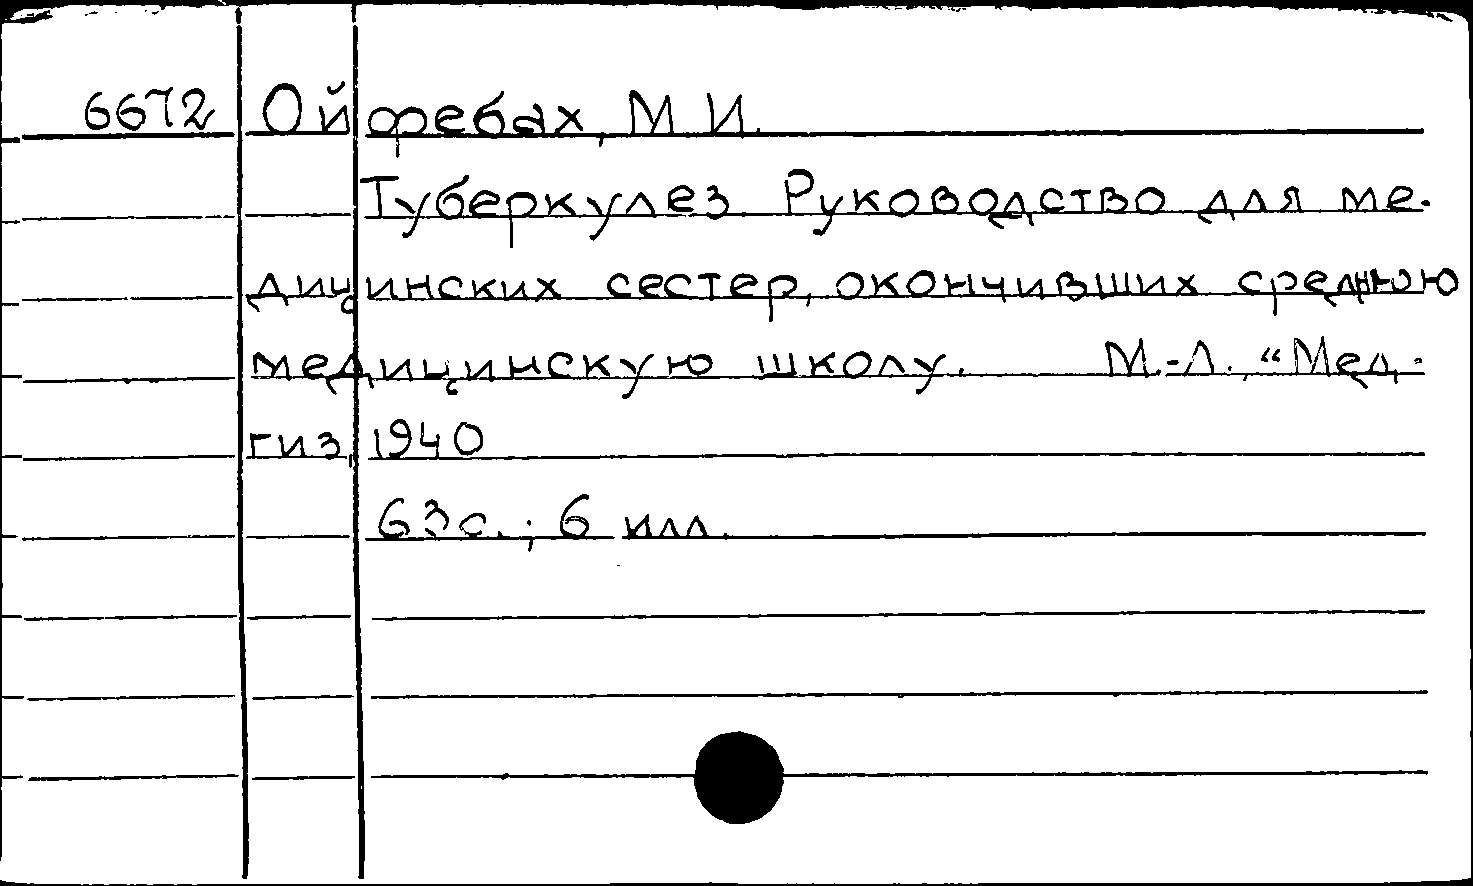 6672 Ойфебах, М И.
Туберкулез. Руководство для ме-
дицинских сестер, окончивших среднюю
медицинскую школу. М.-Л., "Мед-
гиз, 1940
63с.; 6 илл.